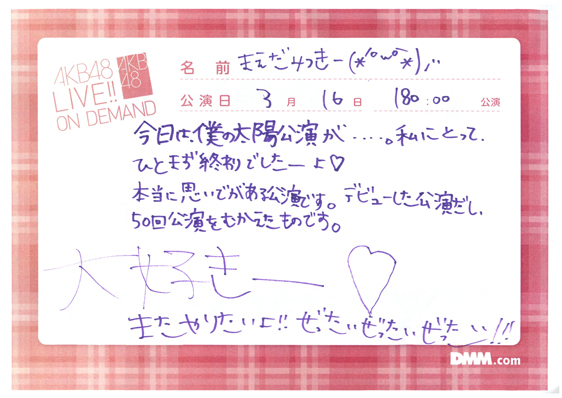 AKB48
LIVE!!
ON DEMAND
AKB
48
名 前 まえだみつきー(*´°ω°`*)ノ"
公演日 3月 16日 180:00 公演
今日は、僕の太陽公演が.....。私にとって、
ひとまず終わりでしたーよ♡
本当に思いでがある公演です。デビューした公演だし、
50回公演をむかえたものです。
大好きー♡
またやりたいよ!!ぜったいぜったいぜったい!!!
DMM.com